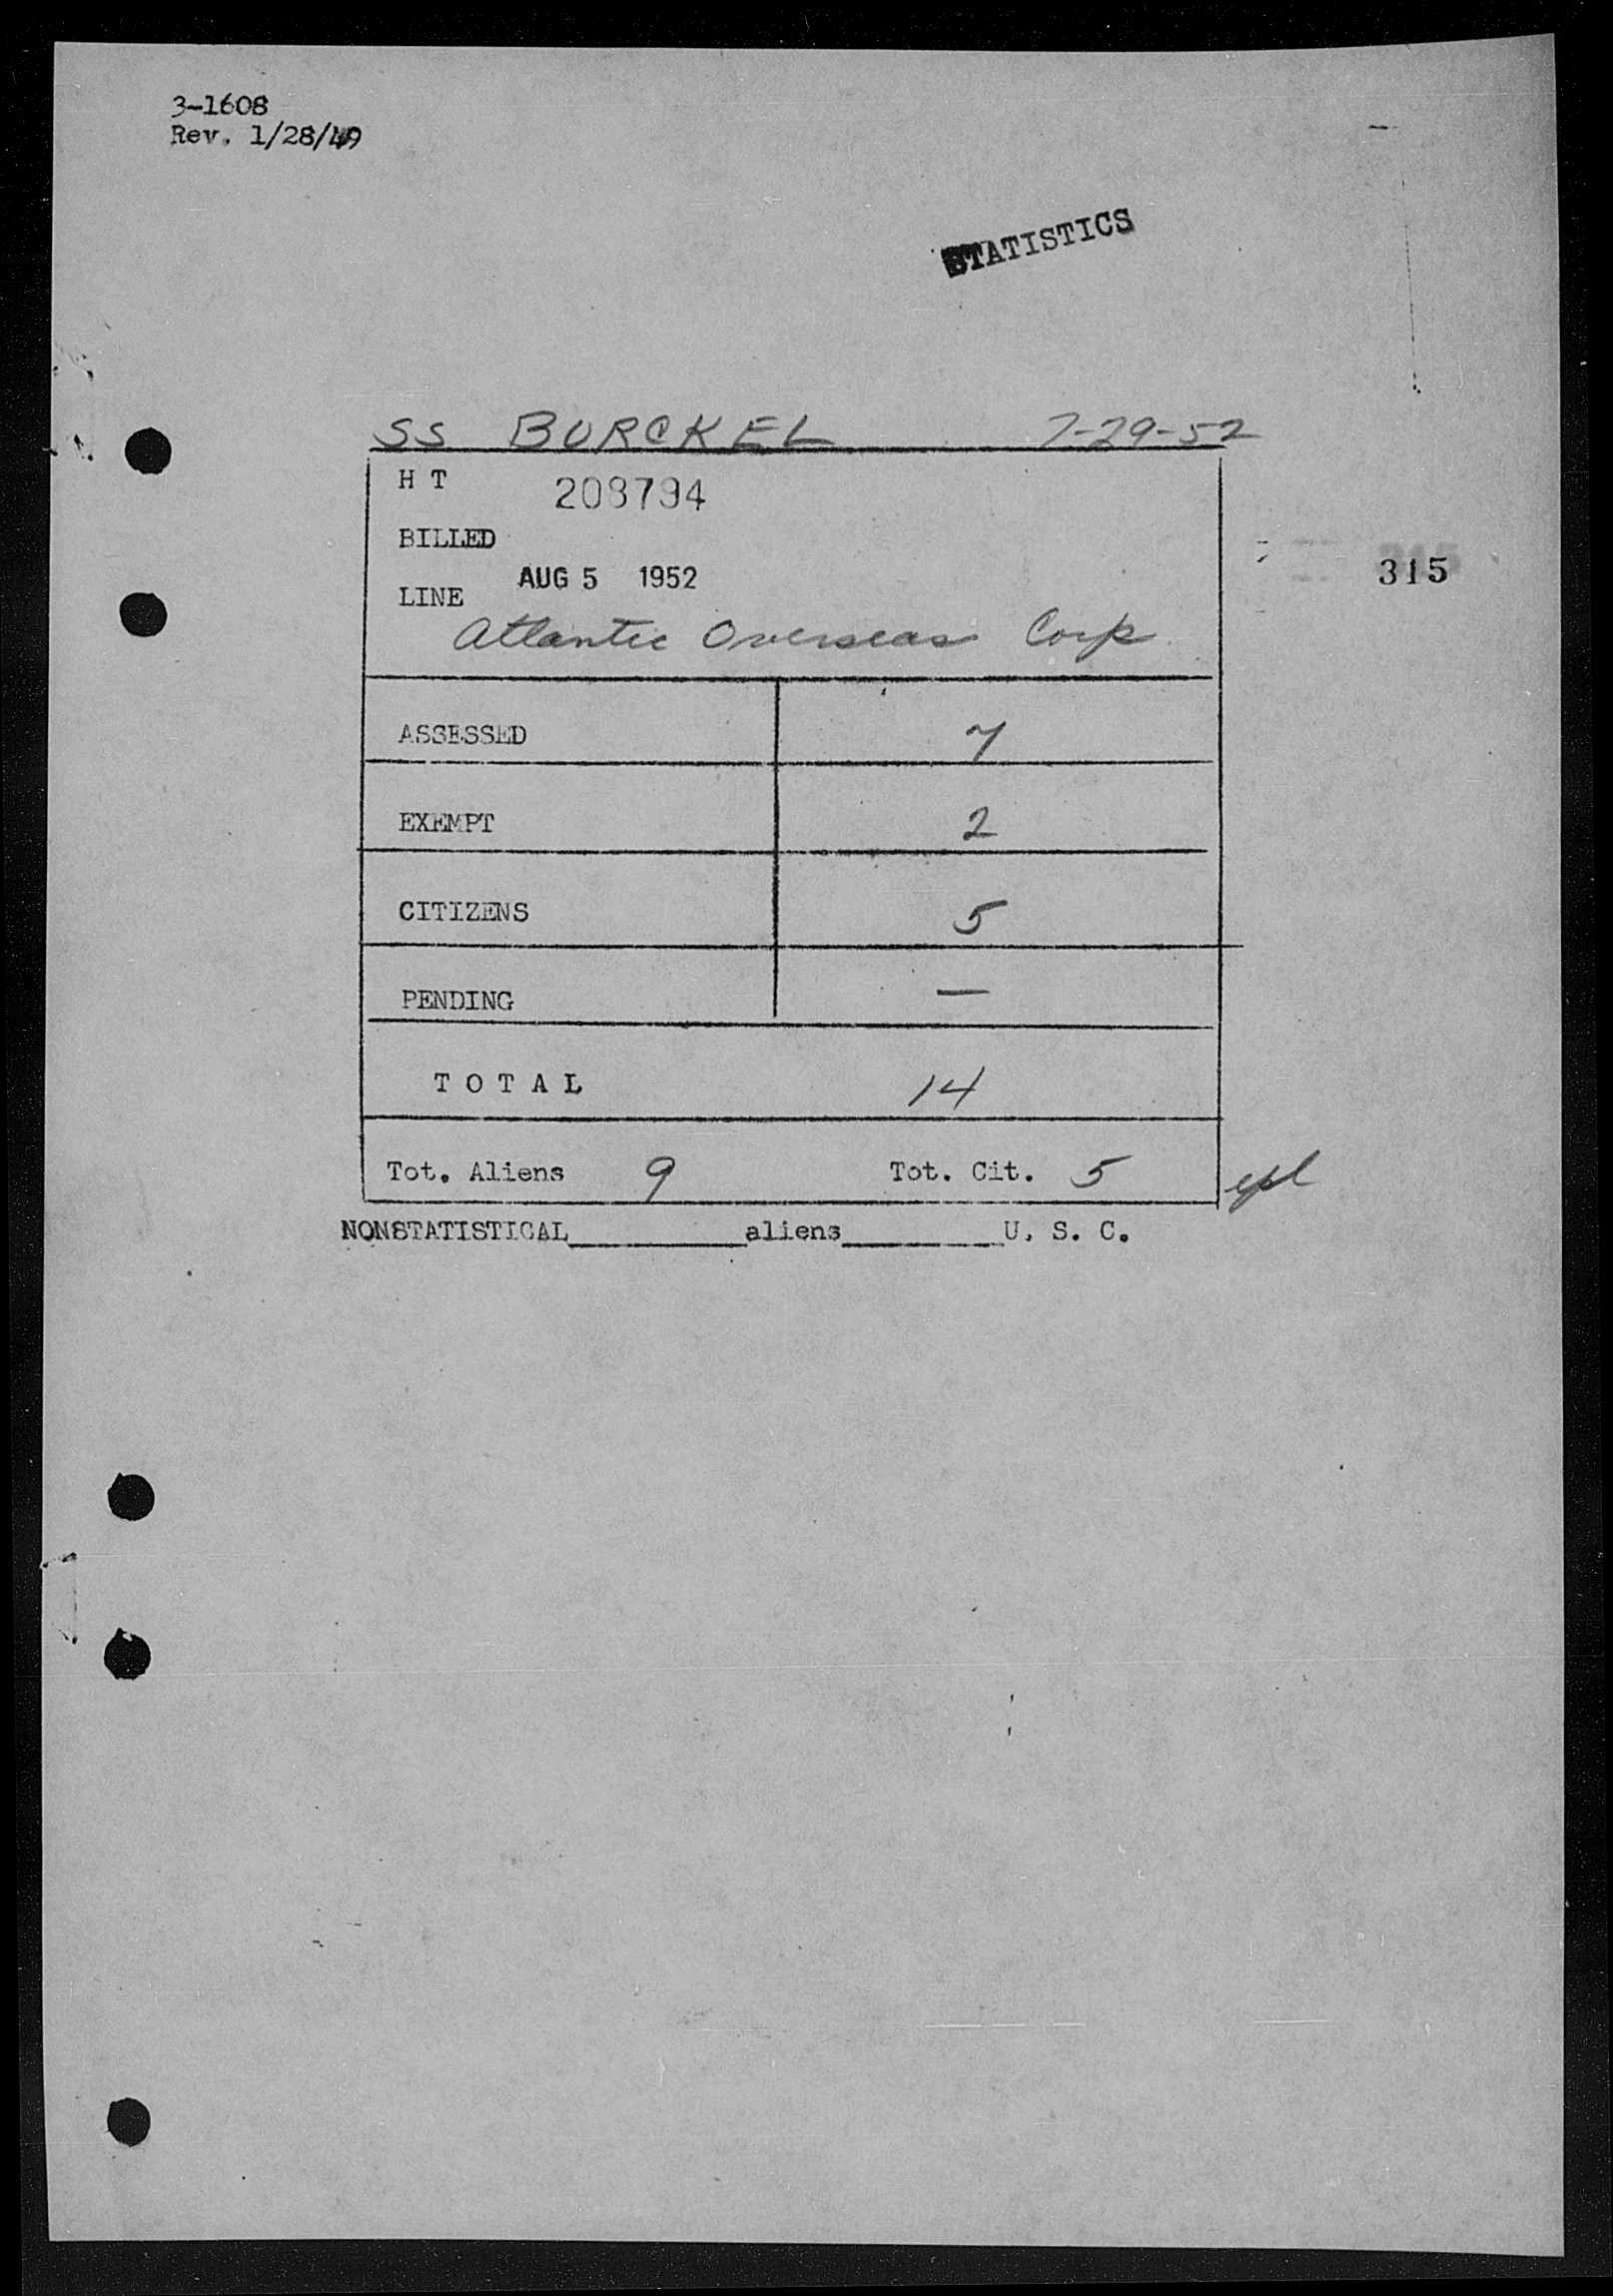 3-1608
Rev. 1/28/49
STATISTICS
SS BURCKEL 7-29-52
H T 208794
BILLED
AUG 5 1952
LINE
315
Atlantic Overseas Corp
ASSESSED 7
EXEMPT 2
CITIZENS 5
PENDING —
T O T A L 14
Tot. Aliens 9 Tot. Cit. 5
NONSTATISTICAL__________aliens_________U. S. C.